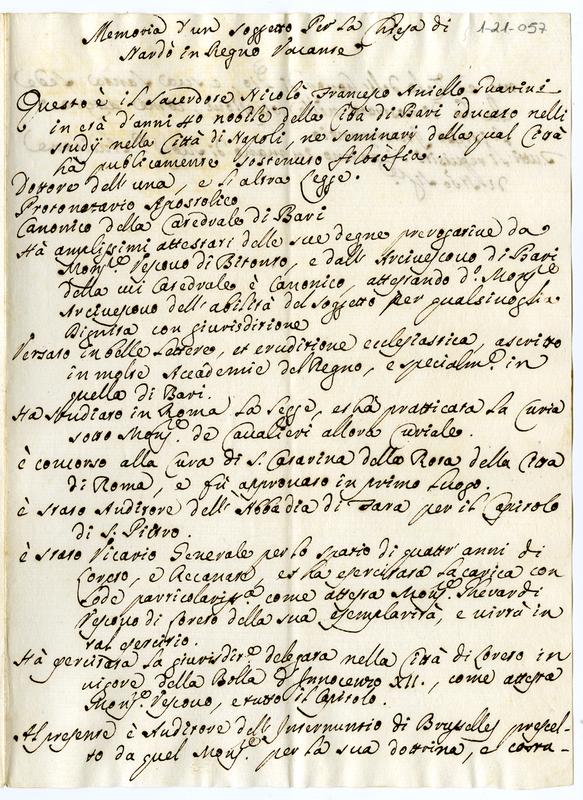 1-21-057
Memoria d'un soggetto Per La Chiesa di
Nardò in Regno Vacante
Questo è il Sacerdote Nicolò Francesco Aniello
in età d'anni 40 nobile della Città di Bari educato nelli
studij nella Città di Napoli, ne seminarij della qual Città
hà publicamente sostenuto filosofia
Dottore dell'una, e l'altra Legge.
Protonotario Apostolico
Canonico della Catedrale di Bari
Hà amplissimi attestati delle sue degne prerogative da
Mons.e Vescovo di Bitonto, e dall'Arcivescovo di Bari
della cui Catedrale è Canonico, attestando d.o Mons.e
Arcivescovo dell'abilità del soggetto per qualsivoglia
Dignità con giurisditione
Versato in belle Lettere, et eruditione ecclesiastica, ascritto
in molte Accademie del Regno, e specialm.e in
quella di Bari.
Ha studiato in Roma La Legge, et hà pratticata La Curia
sotto Mons.e de Cavalieri allora Curiale.
è concorso alla Cura di S. Catarina della Rota della Città
di Roma, e fù approvato in primo Luogo.
è stato Auditore dell'Abbadia di Fara per il Capitolo
di S. Pietro.
è stato Vicario Generale per lo spatio di quattr'anni di
Loreto, e Recanati, et ha esercitata La carica con
Lode particolariss.a come attesta Mons.e Gherardi
Vescovo di Loreto della sua esemplarità, e virtù in
tal esercitio.
Hà esercitata La giurisdit.e delegata nella Città di Loreto in
vigore della Bolla d'Innocenzo XII., come attesta
Mons.e Vescovo, e tutto il Capitolo.
Al presente è Auditore dell'Internuntio di Brusselles prescel-
to da quel Mons.e per la sua dottrina, e costu-